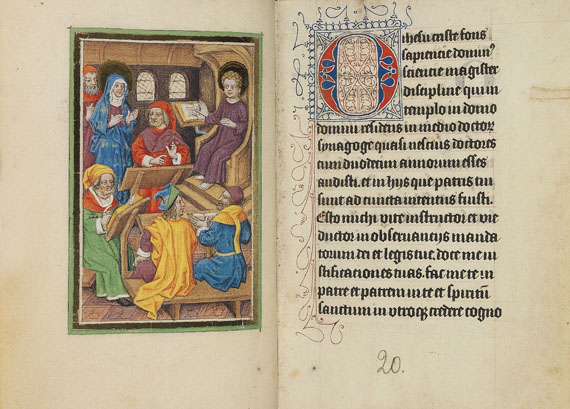 O ihesu criste fons
sapiencie domin᷒
sciencie magister
discipline qui in
templo in domo
domini residens in medio doctor
synagoge quasi nescius doctores
cum duodecim annorum esses
audisti. et in hijs que patris tui
sunt ad cuncta intentus fuisti.
Esto michi vite instructor et vie
ductor in observancijs manda
torum dei et legis tue. doce me iu
stificaciones tuas. fac me te in
patre et patrem in te et spiritū
sanctum in utroq; credere cogno
20.